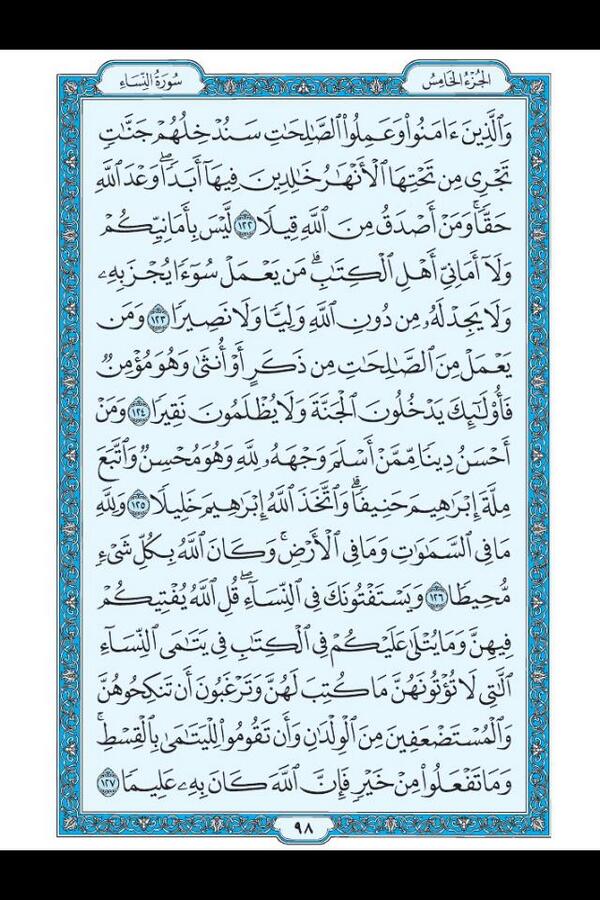 الجُزْءُ الخَامِسُ سُورَةُ النِّسَاءِ
وَالَّذِينَ ءَامَنُوا۟ وَعَمِلُوا۟ الصَّٰلِحَٰتِ سَنُدْخِلُهُمْ جَنَّٰتٍ
تَجْرِى مِن تَحْتِهَا الْأَنْهَٰرُ خَٰلِدِينَ فِيهَآ أَبَدًا ۖ وَعْدَ اللَّهِ
حَقًّا ۚ وَمَنْ أَصْدَقُ مِنَ اللَّهِ قِيلًا ١٢٢ لَّيْسَ بِأَمَانِيِّكُمْ
وَلَآ أَمَانِىِّ أَهْلِ الْكِتَٰبِ ۗ مَن يَعْمَلْ سُوٓءًا يُجْزَ بِهِۦ
وَلَا يَجِدْ لَهُۥ مِن دُونِ اللَّهِ وَلِيًّا وَلَا نَصِيرًا ١٢٣ وَمَن
يَعْمَلْ مِنَ الصَّٰلِحَٰتِ مِن ذَكَرٍ أَوْ أُنثَىٰ وَهُوَ مُؤْمِنٌ
فَأُو۟لَٰٓئِكَ يَدْخُلُونَ الْجَنَّةَ وَلَا يُظْلَمُونَ نَقِيرًا ١٢٤ وَمَنْ
أَحْسَنُ دِينًا مِّمَّنْ أَسْلَمَ وَجْهَهُۥ لِلَّهِ وَهُوَ مُحْسِنٌ وَاتَّبَعَ
مِلَّةَ إِبْرَٰهِيمَ حَنِيفًا ۗ وَاتَّخَذَ اللَّهُ إِبْرَٰهِيمَ خَلِيلًا ١٢٥ وَلِلَّهِ
مَا فِى السَّمَٰوَٰتِ وَمَا فِى الْأَرْضِ ۚ وَكَانَ اللَّهُ بِكُلِّ شَىْءٍ
مُّحِيطًا ١٢٦ وَيَسْتَفْتُونَكَ فِى النِّسَآءِ ۖ قُلِ اللَّهُ يُفْتِيكُمْ
فِيهِنَّ وَمَا يُتْلَىٰ عَلَيْكُمْ فِى الْكِتَٰبِ فِى يَتَٰمَى النِّسَآءِ
الَّٰتِى لَا تُؤْتُونَهُنَّ مَا كُتِبَ لَهُنَّ وَتَرْغَبُونَ أَن تَنكِحُوهُنَّ
وَالْمُسْتَضْعَفِينَ مِنَ الْوِلْدَٰنِ وَأَن تَقُومُوا۟ لِلْيَتَٰمَىٰ بِالْقِسْطِ ۚ
وَمَا تَفْعَلُوا۟ مِنْ خَيْرٍ فَإِنَّ اللَّهَ كَانَ بِهِۦ عَلِيمًا ١٢٧
٩٨